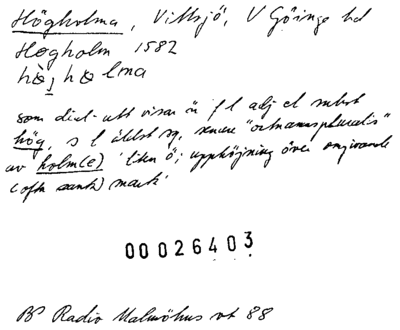 Högholma, Vittsjö, V Göinge hd
Høgholm 1582
høj hølma
som dial-utt visar är f l adj el subst
hög, s l äldst sg, senare "ortnamnspluralis"
av holm(e) 'liten ö; upphöjning över omgivande
(ofta sank) mark'
00026403
BP Radio Malmöhus vt 88